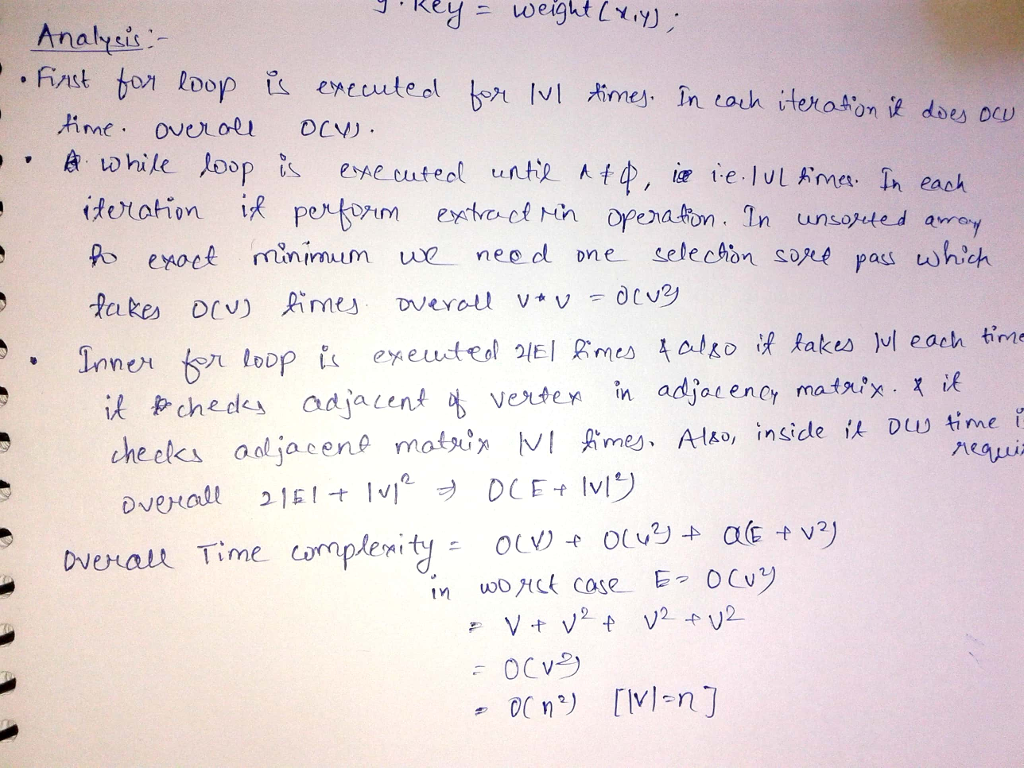 y.key = weight(x,y);
Analysis:-
• First for loop is executed for |V| times. In each iteration it does O(1)
time. overall O(V).
• while loop is executed until A ≠ ϕ, i.e. |V| times. In each
iteration it perform extract min operation. In unsorted array
to exact minimum we need one selection sort pass which
takes O(V) times. overall V*V = O(V²)
• Inner for loop is executed 2|E| times & also it takes |V| each time
it checks adjacent of vertex in adjacency matrix. & it
checks adjacent matrix |V| times. Also, inside it O(1) time is
requi
overall 2|E| + |V|² ⇒ O(E + |V|²)
Overall Time complexity = O(V) + O(V²) + O(E + V²)
in worst case E = O(V²)
= V + V² + V² + V²
= O(V²)
= O(n²) [|V|=n]